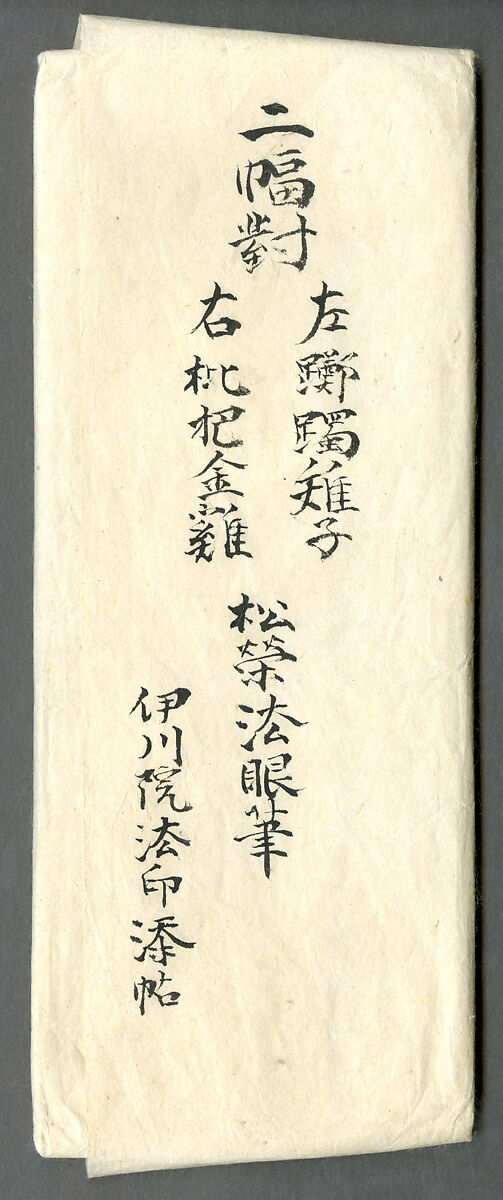 二幅對
左躑躅雉子
右枇杷金雞
松榮法眼筆
伊川院法印添帖